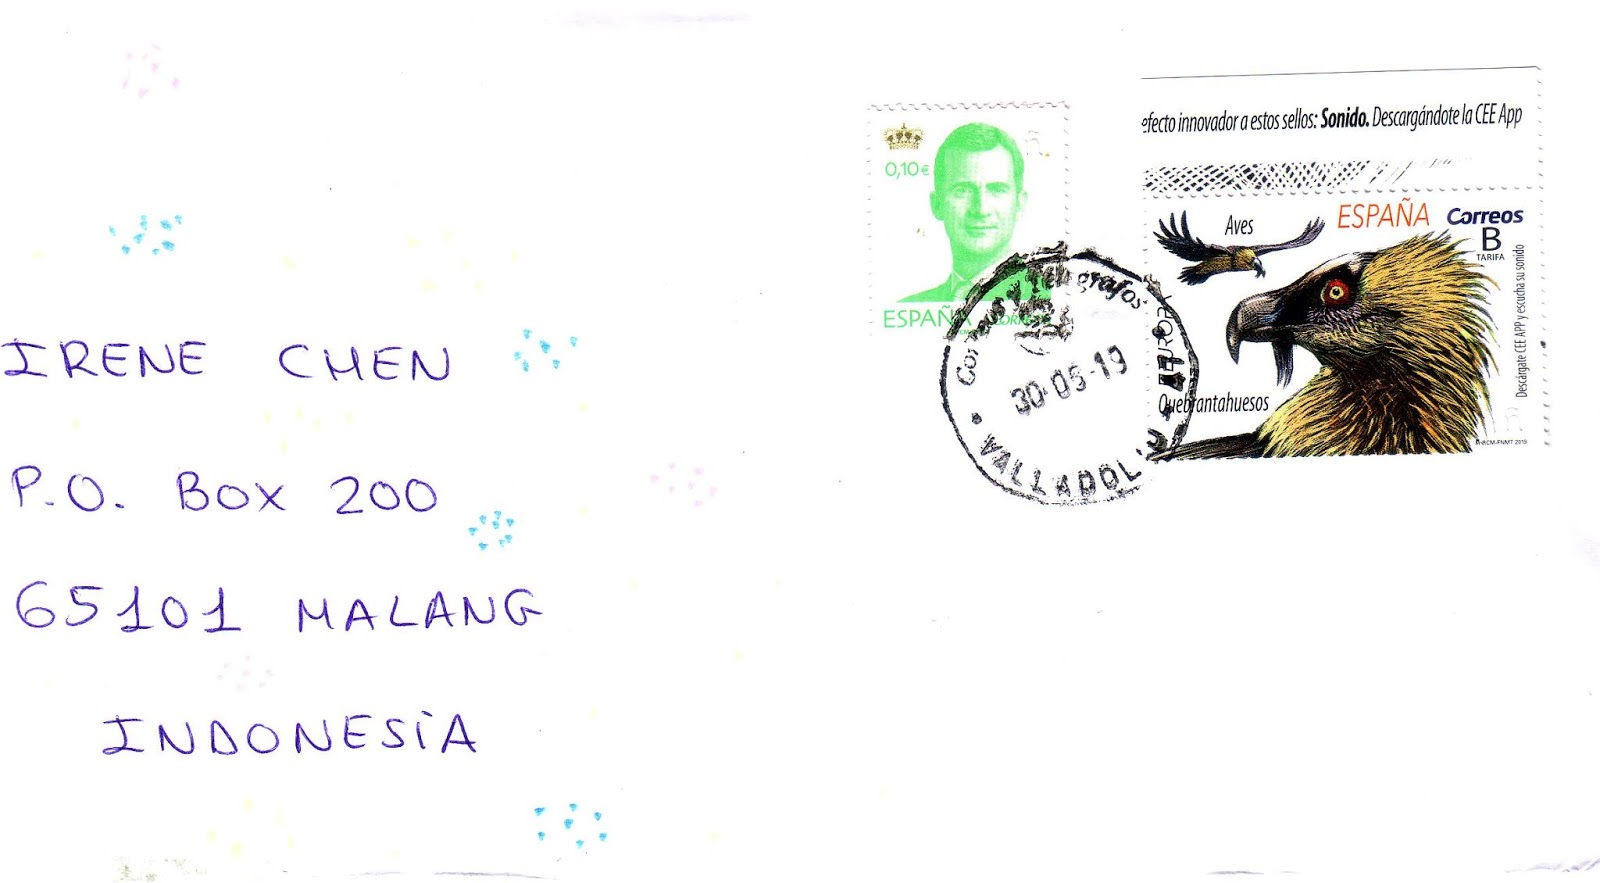 IRENE CHEN
P.O. BOX 200
65101 MALANG
INDONESiA
0,10€
ESPAÑA CORREOS
efecto innovador a estos sellos: Sonido. Descargándote la CEE App
Aves
ESPAÑA Correos
B
TARIFA
Quebrantahuesos
EUROPA
Descárgate CEE APP y escucha su sonido
RCM-FNMT 2019
Correos y Telégrafos
30-05-19
VALLADOLID